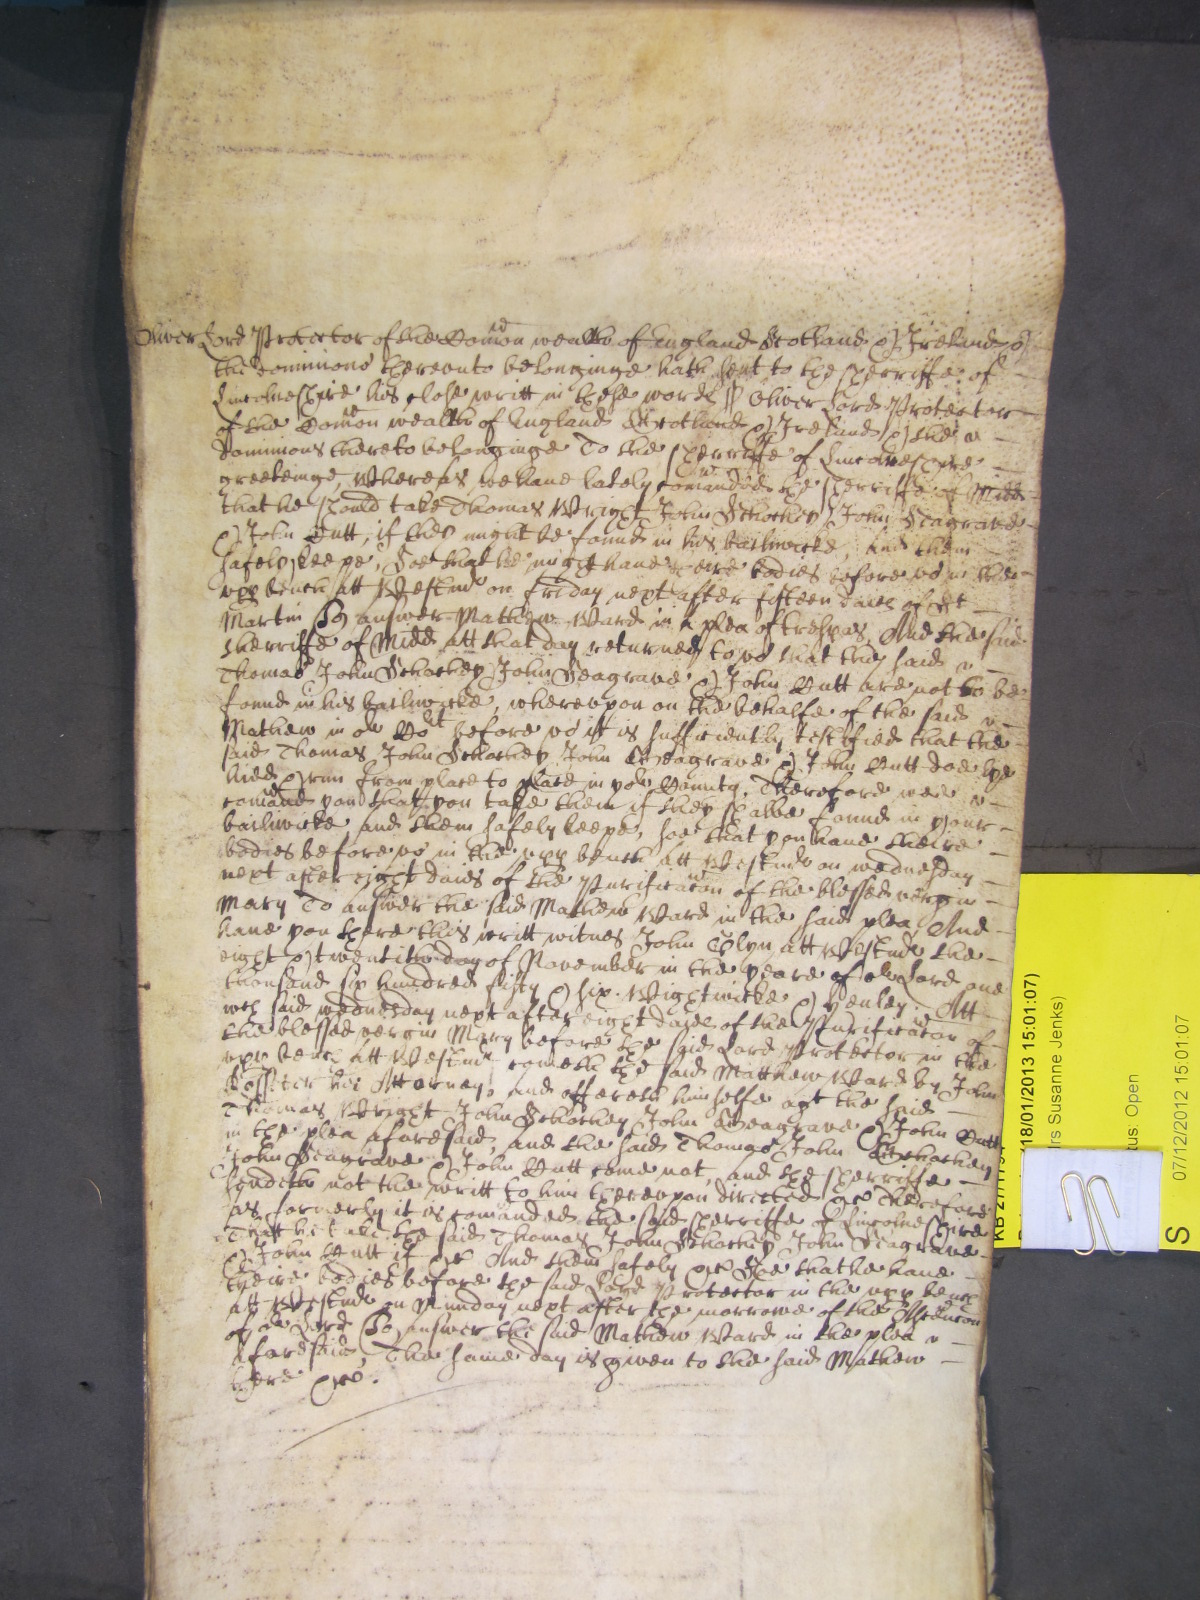 Oliver Lord Protector of the Comon wealth of England Scotland & Ireland &
the dominions thereunto belonginge hath sent to the sherriffe of
Lincolneshire his close writt in these words ss Oliver Lord Protector
of the Comon wealth of England Scotland & Ireland & the
Dominions thereto belonginge To the sherriffe of Lincolneshire
greeteinge, Whereas wee have lately comanded the sherriffe of Midd
that he should take Thomas Wright John John Seagrave
& John Cutt, if they might be found in his bailiwicke, And them
safely keepe, Soe that he might have theire bodies before us in the
upp bench att Westmr on Friday next after fifteen daies of St
Martin To answer Mathew Ward in a plea of trespas, And the said
sherriffe of Midd att that day returned to us that they said
Thomas John John Seagrave & John Cutt are not to be
found in his bailiwicke, whereupon on the behalfe of the said
Mathew in our Cort before us itt is sufficiently testified that the
said Thomas John John Seagrave & John Cutt doe lye
hidd & run from place to place in yor County. Therefore wee
comand you that you take them if they shalbe found in your
bailiwicke and them safely keepe, soe that you have theire
bodies before us in the upp bench att Westmr on wednesday
next after eight daies of the Purificacon of the blessed virgin
Mary To answer the said Mathew Ward in the said plea, And
have you there this writt witnes John Glyn att Westmr the
eight & twentith day of November in the yeare of our Lord one
thousand six hundred fifty & six. Wightwicke & Henley. Att
wch said wednesday next after eight daies of the Purificacon of
the blessed vergin Mary before the said Lord Protector in the
upp bench att Westmr cometh the said Matthew Ward by John
Rossiter his Attorney, and offereth himselfe agt the said
Thomas Wright John John Seagrave & John Cutt
in the plea aforesaid, and the said Thomas John
John Seagrave & John Cutt come not, and the sherriffe
sendeth not the writt to him thereupon directed &c Therefore
as formerly it is comanded the said sherriffe of Lincolneshire
That he take the said Thomas John John Seagrave
& John Cutt if &c And them safely &c Soe that he have
theire bodies before the said Lord Protector in the upp bench
att Westmr on Munday next after the morrowe of the Ascencon
of our Lord To answer the said Mathew Ward in the plea
aforesaid, The same day is given to the said Mathew
there &c.
18/01/2013 15:01:07)
rs Susanne Jenks)
tus: Open
07/12/2012 15:01:07
S